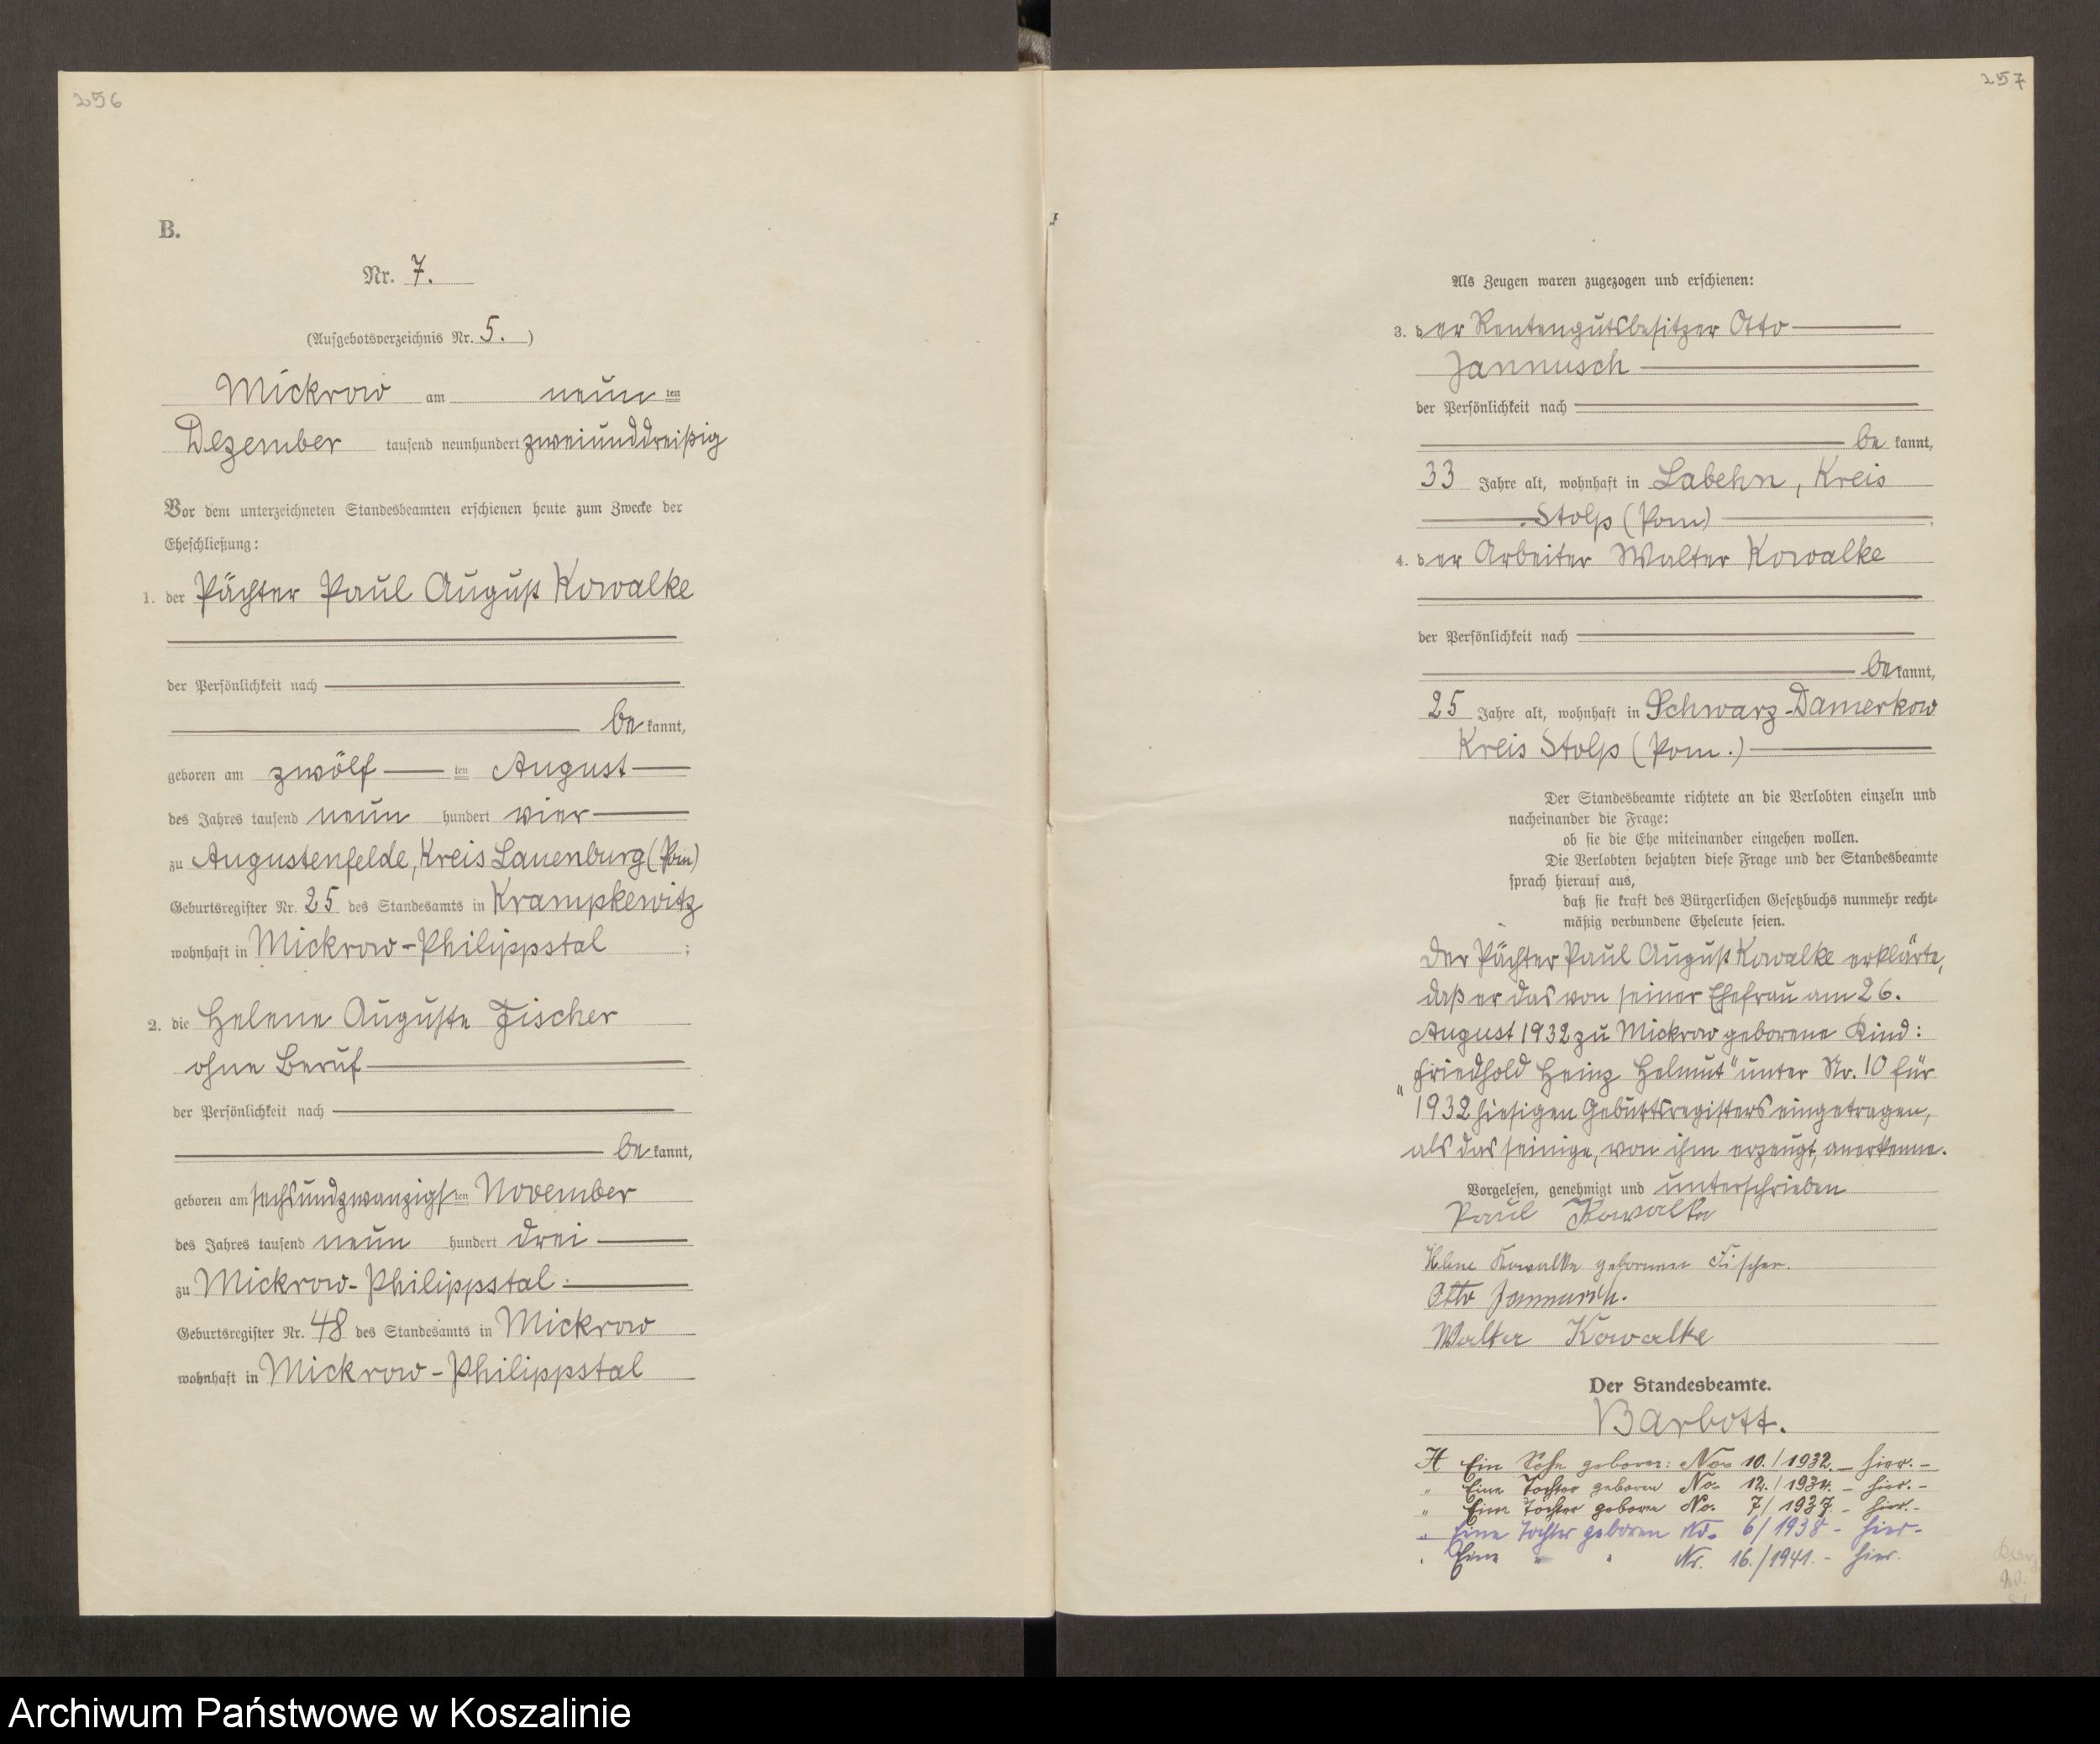 256
B.
Nr. 7.
(Aufgebotsverzeichnis Nr. 5. )
Mickrow am neun ten
Dezember tausend neunhundert zweiunddreißig
Vor dem unterzeichneten Standesbeamten erschienen heute zum Zwecke der
Eheschließung:
1. der Pächter Paul August Kowalke
der Persönlichkeit nach
be kannt,
geboren am zwölf ten August
des Jahres tausend neun hundert vier
zu Augustenfelde, Kreis Lauenburg (Pom)
Geburtsregister Nr. 25 des Standesamts in Krampkewitz
wohnhaft in Mickrow-Philippstal ;
2. die Helene Auguste Fischer
ohne Beruf
der Persönlichkeit nach
be kannt,
geboren am sechsundzwanzigsten November
des Jahres tausend neun hundert drei
zu Mickrow-Philippstal.
Geburtsregister Nr. 48 des Standesamts in Mickrow
wohnhaft in Mickrow-Philippstal
257
Als Zeugen waren zugezogen und erschienen:
3. der Rentengutsbesitzer Otto
Jannusch
der Persönlichkeit nach
be kannt,
33 Jahre alt, wohnhaft in Labehn, Kreis
Stolp (Pom)
4. der Arbeiter Walter Kowalke
der Persönlichkeit nach
be kannt,
25 Jahre alt, wohnhaft in Schwarz-Damerkow
Kreis Stolp (Pom.)
Der Standesbeamte richtete an die Verlobten einzeln und
nacheinander die Frage:
ob sie die Ehe miteinander eingehen wollen.
Die Verlobten bejahten diese Frage und der Standesbeamte
sprach hierauf aus,
daß sie kraft des Bürgerlichen Gesetzbuchs nunmehr recht-
mäßig verbundene Eheleute seien.
Der Pächter Paul August Kowalke erklärte,
daß er das von seiner Ehefrau am 26.
August 1932 zu Mickrow geborene Kind:
„Friedhold Heinz Helmut" unter Nr. 10 für
1932 hiesigen Geburtsregisters eingetragen,
als das seinige, von ihm erzeugt, anerkenne.
Vorgelesen, genehmigt und unterschrieben
Paul Kowalke
Helene Kowalke geborenen Fischer.
Otto Jannusch.
Walter Kowalke
Der Standesbeamte.
Barbott.
H Ein Sohn geboren: No. 10./1932. – hier. –
" Eine Tochter geboren No. 12./1934. – hier. –
" Eine Tochter geboren No. 7/1937. – hier. –
" Eine Tochter geboren No. 6/1938 – hier –
" Eine " " Nr. 16./1941. – hier.
Archiwum Państwowe w Koszalinie